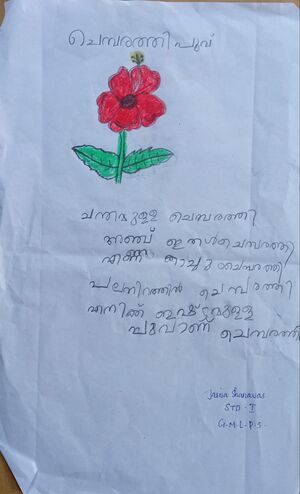 ചെമ്പരത്തി പൂവ്
ചന്തമുള്ള ചെമ്പരത്തി
അഞ്ച് ഇതൾ ചെമ്പരത്തി
എണ്ണ കാച്ചും ചെമ്പരത്തി
പലനിറത്തിൽ ചെമ്പരത്തി
എനിക്ക് ഇഷ്ട്ടമുള്ള
പൂവാണ് ചെമ്പരത്തി
Jasna Shanavas
STD - I
G.M.L.P.S.